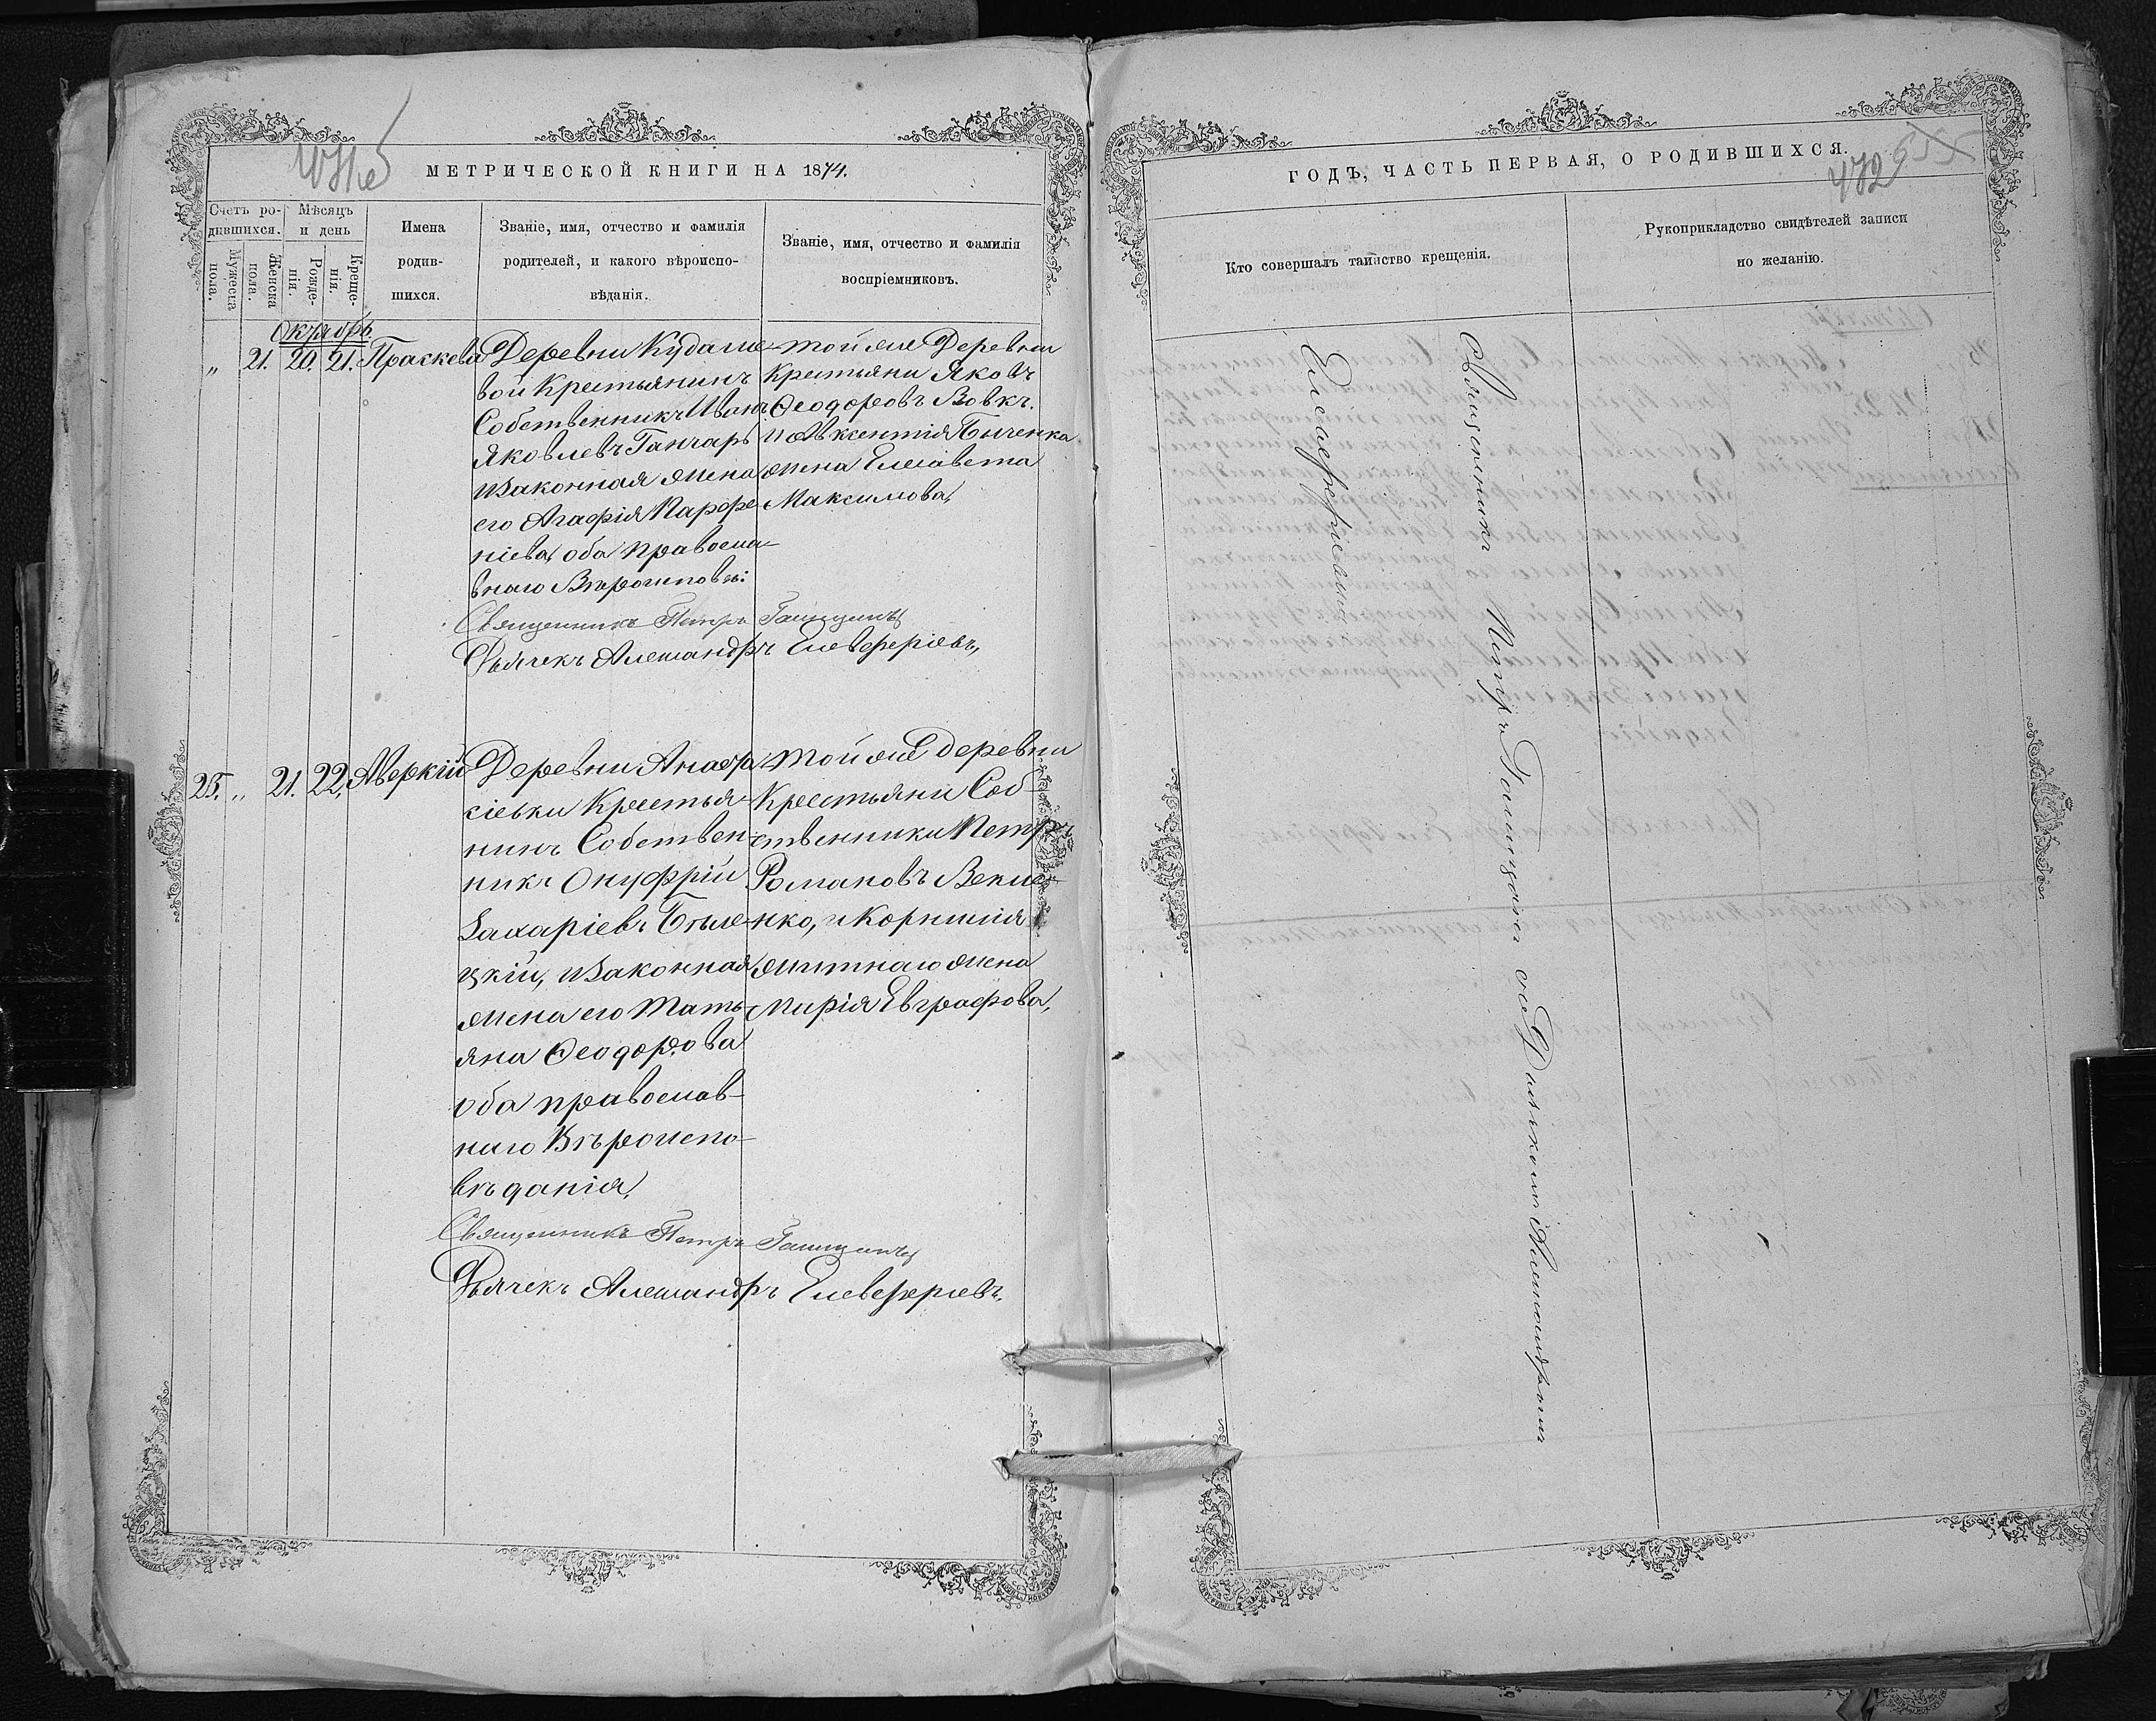 МЕТРИЧЕСКОЙ КНИГИ НА 1874.
Счетъ ро-
дившихся.
Мѣсяцъ
и день
Мужеска
пола.
Женска
пола.
Рожде-
нія.
Креще-
нія.
Имена
родив-
шихся.
Званіе, имя, отчество и фамилія
родителей, и какого вѣроиспо-
вѣданія.
Званіе, имя, отчество и фамилія
воспріемниковъ.
Октябрь
„ 21. 20. 21. Праскева
Деревни Кудаше-
вой Крестьянинъ
Собственникъ Иванъ
Яковлевъ Ганчаръ
и Законная жена
его Агафія Парфе-
ніева, оба правосла-
внаго Вѣроиспов:
той же Деревни
Крестьяни Яковъ
Ѳеодоровъ Вовкъ.
и Авксентія Быченка
жена Елисавета
Максимова,
Священникъ Петръ
Дьячекъ Александръ Елевферіевъ,
25. „ 21. 22, Аверкій
Деревни
Крестья-
нинъ Собствен-
никъ Онуфрій
Захаріевъ
цкій, и Законная
жена его Тать-
яна Ѳеодорова
оба православ-
наго Вѣроиспо-
вѣданія,
той же деревни
Крестьяни Соб-
ственники Петръ
Романовъ Векле-
нко, и Корнилія
Житнаго жена
Марія Евграфова,
Священникъ Петръ
Дьячекъ Александръ Елевферіевъ.
ГОДЪ, ЧАСТЬ ПЕРВАЯ, О РОДИВШИХСЯ.
472
655
Кто совершалъ таинство крещенія.
Рукоприкладство свидѣтелей записи
по желанію.
Священникъ Петръ съ Дьячкомъ Александромъ
Елевферіевымъ